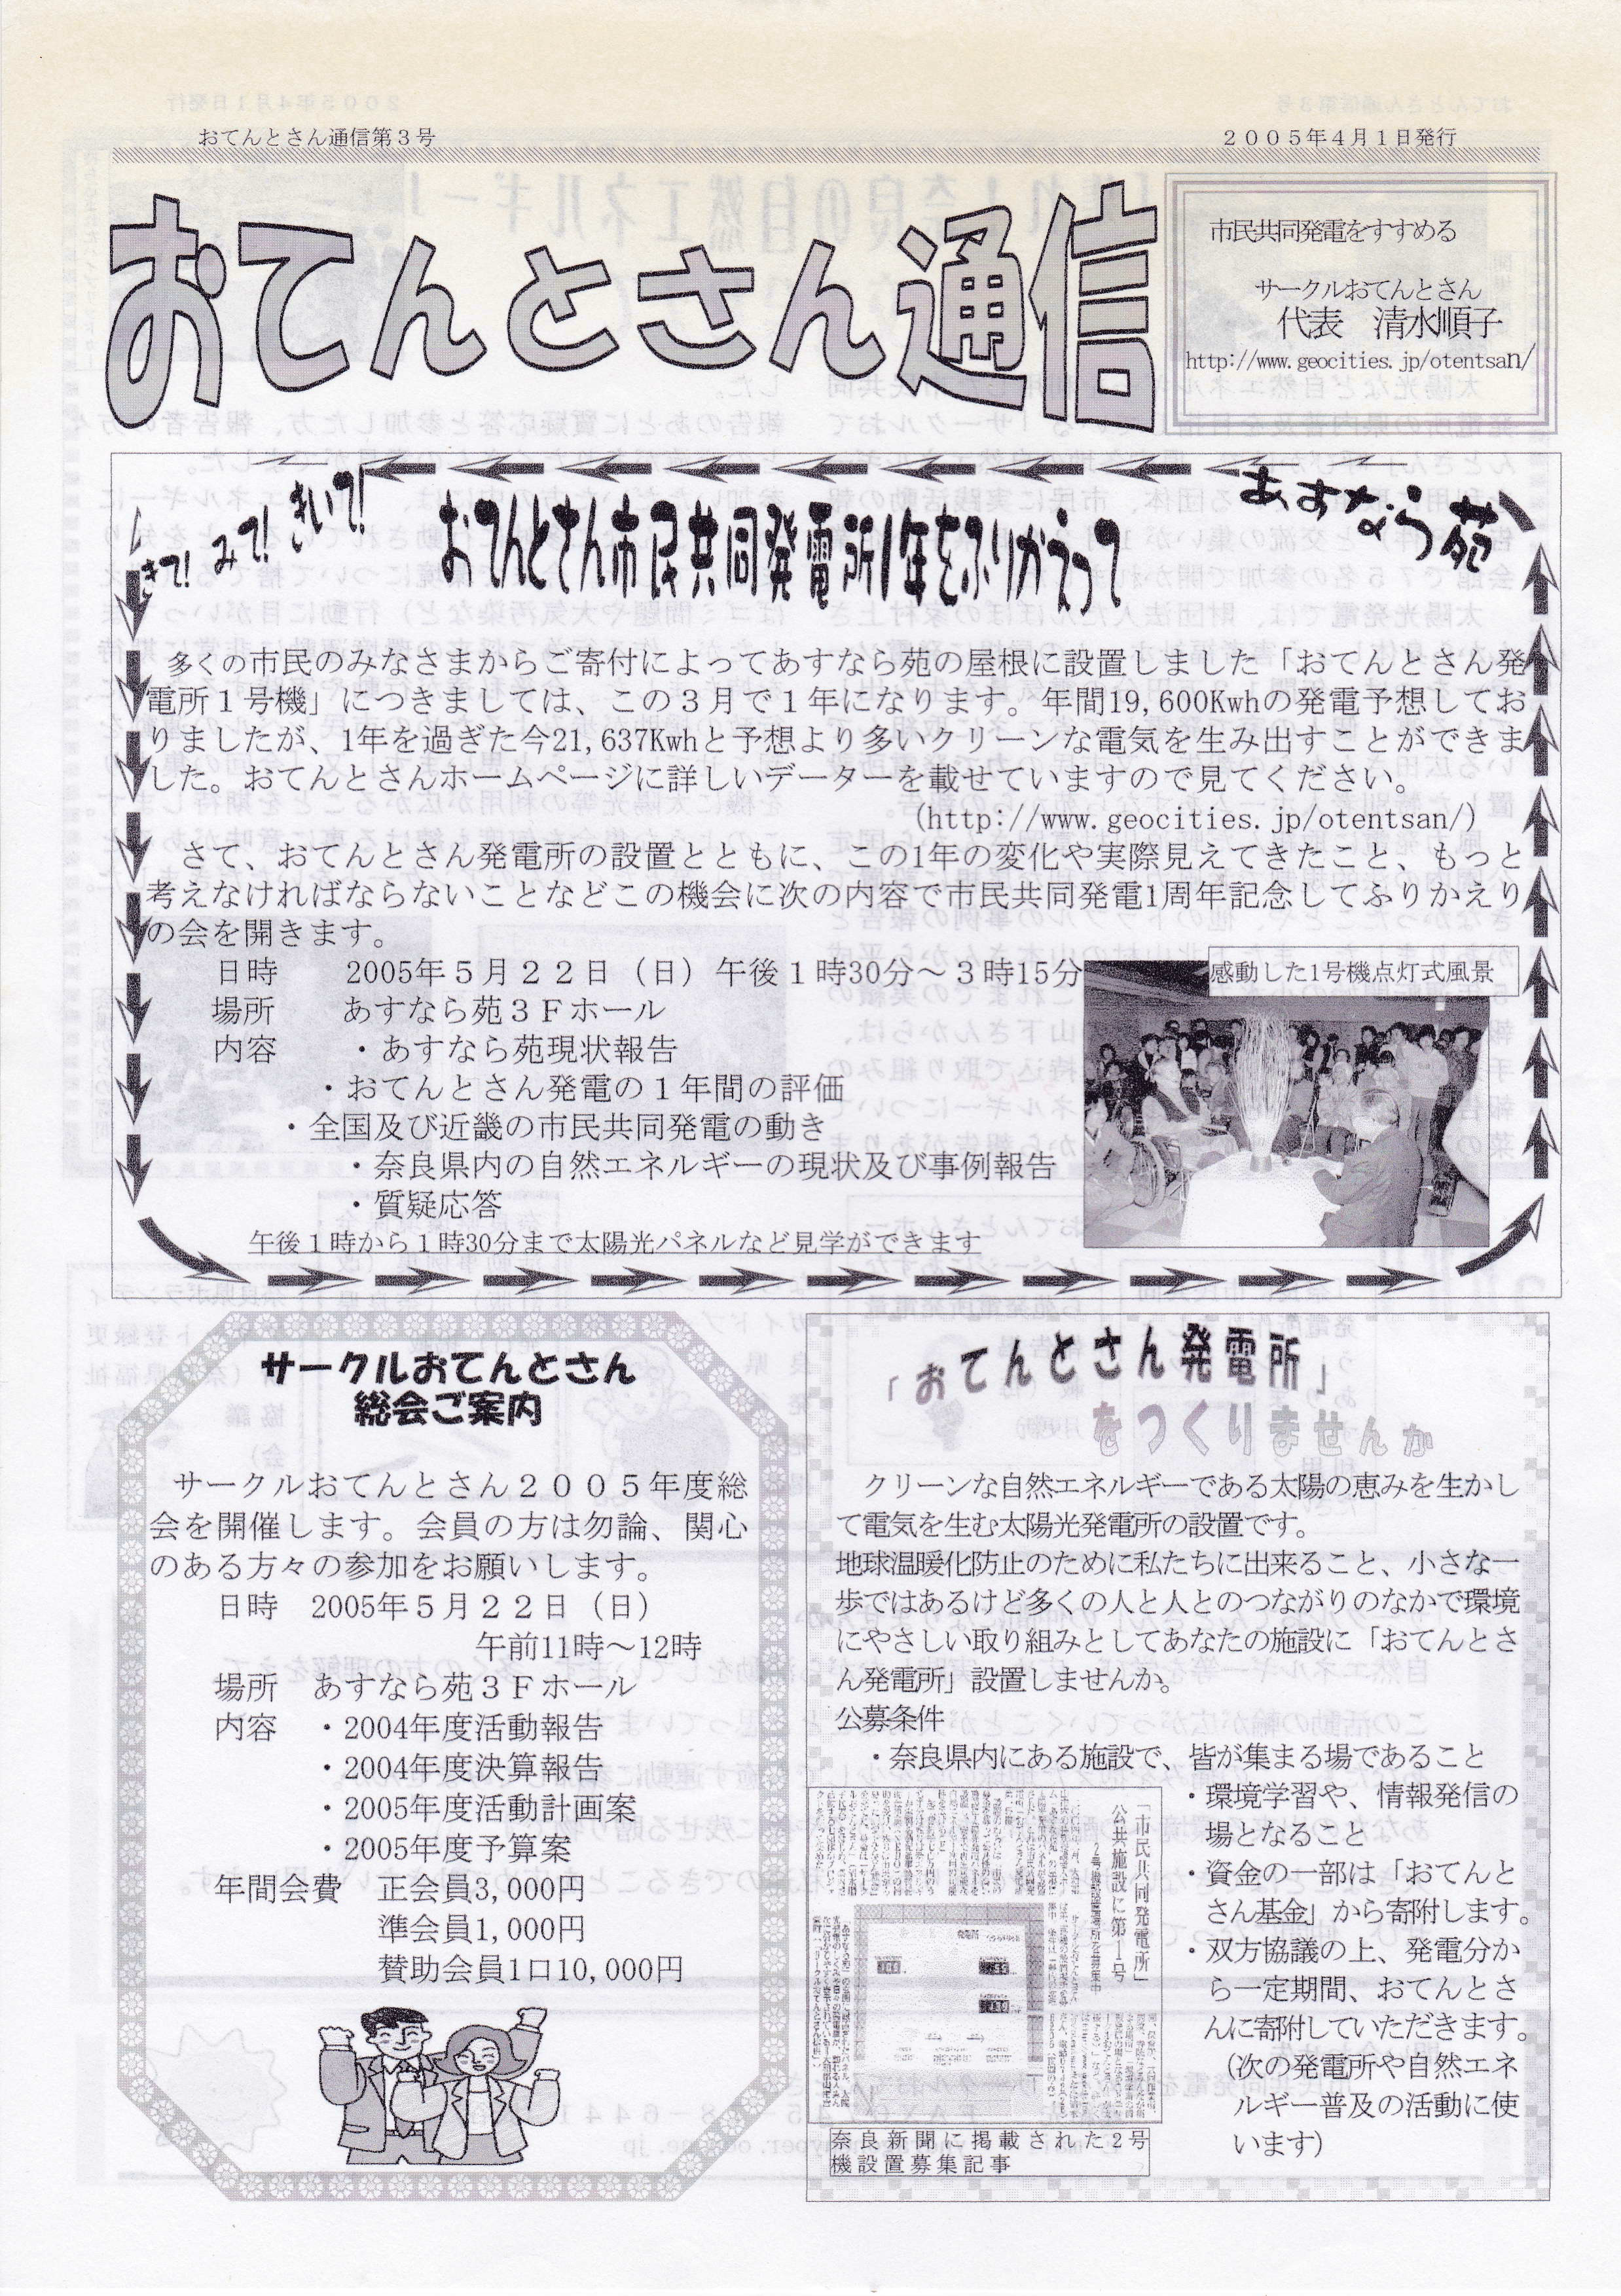 おてんとさん通信第３号
２００５年４月１日発行
おてんとさん通信
市民共同発電をすすめる
サークルおてんとさん
代表　清水順子
http://www.geocities.jp/otentsan/
きて！みて！きいて！
おてんとさん市民共同発電所1年をふりかえって
あすなら苑
多くの市民のみなさまからご寄付によってあすなら苑の屋根に設置しました「おてんとさん発
電所１号機」につきましては、この３月で１年になります。年間19,600Kwhの発電予想してお
りましたが、1年を過ぎた今21,637Kwhと予想より多いクリーンな電気を生み出すことができま
した。おてんとさんホームページに詳しいデーターを載せていますので見てください。
(http://www.geocities.jp/otentsan/)
さて、おてんとさん発電所の設置とともに、この1年の変化や実際見えてきたこと、もっと
考えなければならないことなどこの機会に次の内容で市民共同発電1周年記念してふりかえり
の会を開きます。
日時　2005年５月２２日（日）午後１時30分～３時15分
場所　あすなら苑３Ｆホール
内容　・あすなら苑現状報告
・おてんとさん発電の１年間の評価
・全国及び近畿の市民共同発電の動き
・奈良県内の自然エネルギーの現状及び事例報告
・質疑応答
午後１時から１時30分まで太陽光パネルなど見学ができます
感動した1号機点灯式風景
サークルおてんとさん
総会ご案内
サークルおてんとさん２００５年度総
会を開催します。会員の方は勿論、関心
のある方々の参加をお願いします。
日時　2005年５月２２日（日）
午前11時～12時
場所　あすなら苑３Ｆホール
内容　・2004年度活動報告
・2004年度決算報告
・2005年度活動計画案
・2005年度予算案
年間会費　正会員3,000円
準会員1,000円
賛助会員1口10,000円
「おてんとさん発電所」
をつくりませんか
クリーンな自然エネルギーである太陽の恵みを生かし
て電気を生む太陽光発電所の設置です。
地球温暖化防止のために私たちに出来ること、小さな一
歩ではあるけど多くの人と人とのつながりのなかで環境
にやさしい取り組みとしてあなたの施設に「おてんとさ
ん発電所」設置しませんか。
公募条件
・奈良県内にある施設で、皆が集まる場であること
・環境学習や、情報発信の
場となること
・資金の一部は「おてんと
さん基金」から寄附します。
・双方協議の上、発電分か
ら一定期間、おてんとさ
んに寄附していただきます。
（次の発電所や自然エネ
ルギー普及の活動に使
います）
「市民共同発電所」
公共施設に第1号
奈良新聞に掲載された2号
機設置募集記事